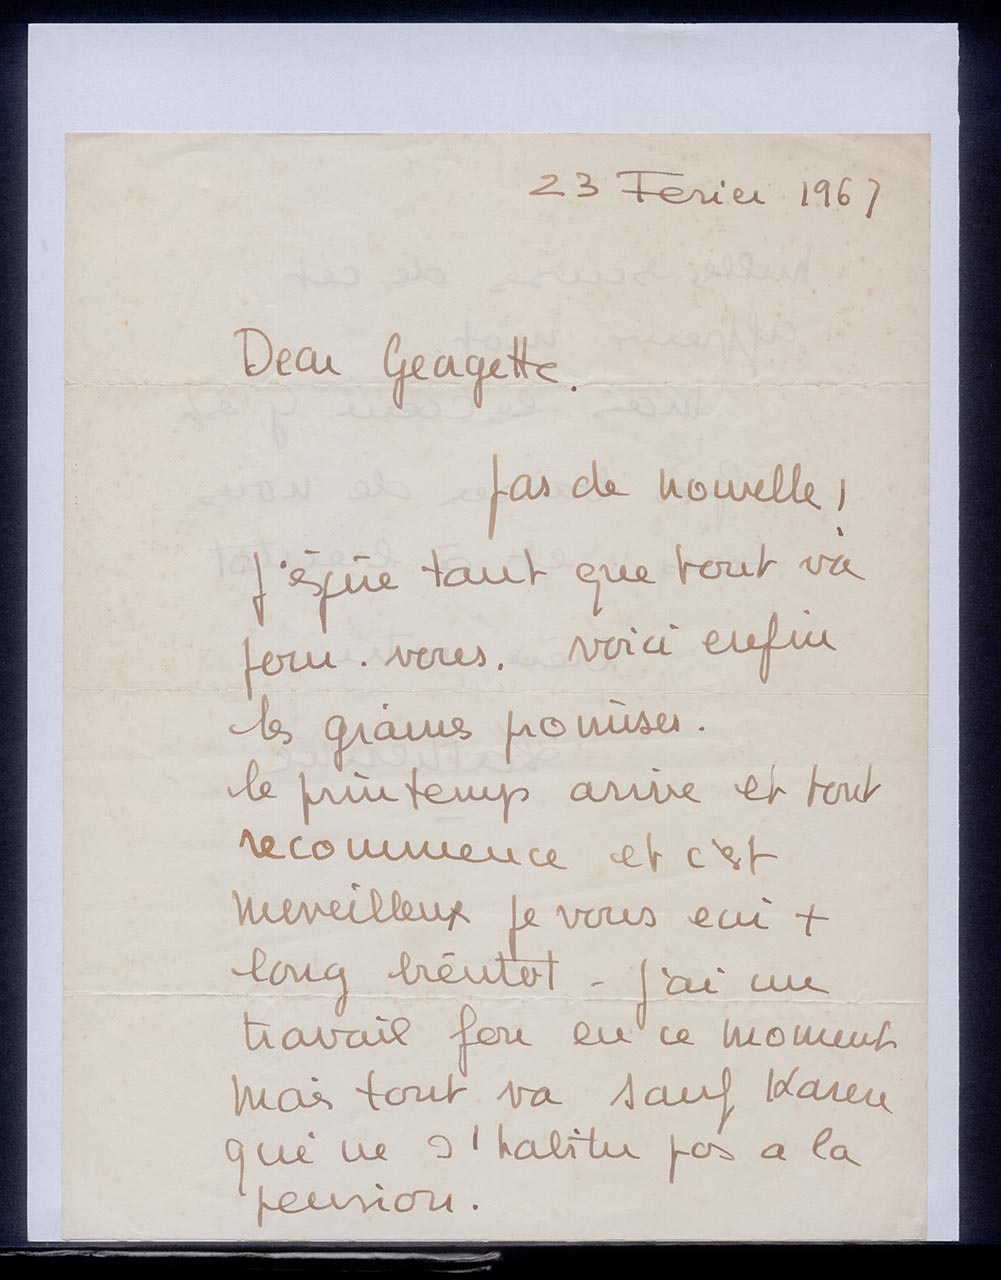 23 Ferier 1967
Dear Georgette.
pas de nouvelle,
J'éspère tant que tout và
pour. vous. voici enfin
les graines promises.
le printemps arive et tout
recommence et c'est
merveilleux je vous ecri +
long bientot - j'ai un
travail fou en ce moment
mais tout va sauf Karen
qui ne s'habitu pas a la
pension.